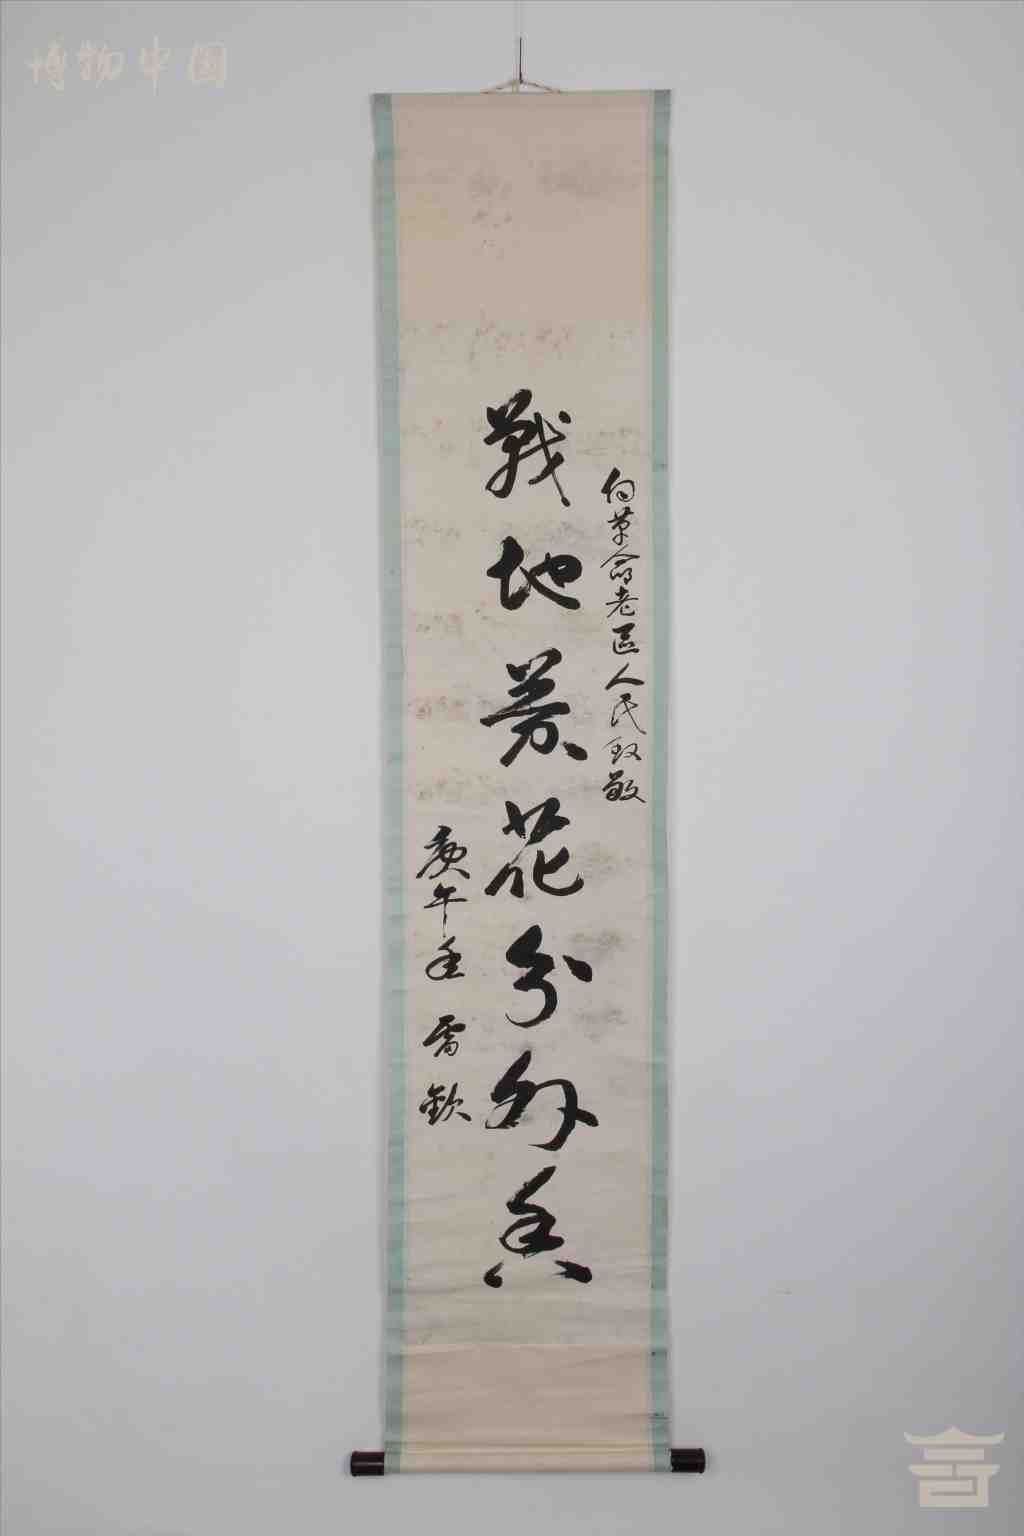 博物中国
向革命老區人民致敬
戰地黄花分外香
庚午年 雷欽